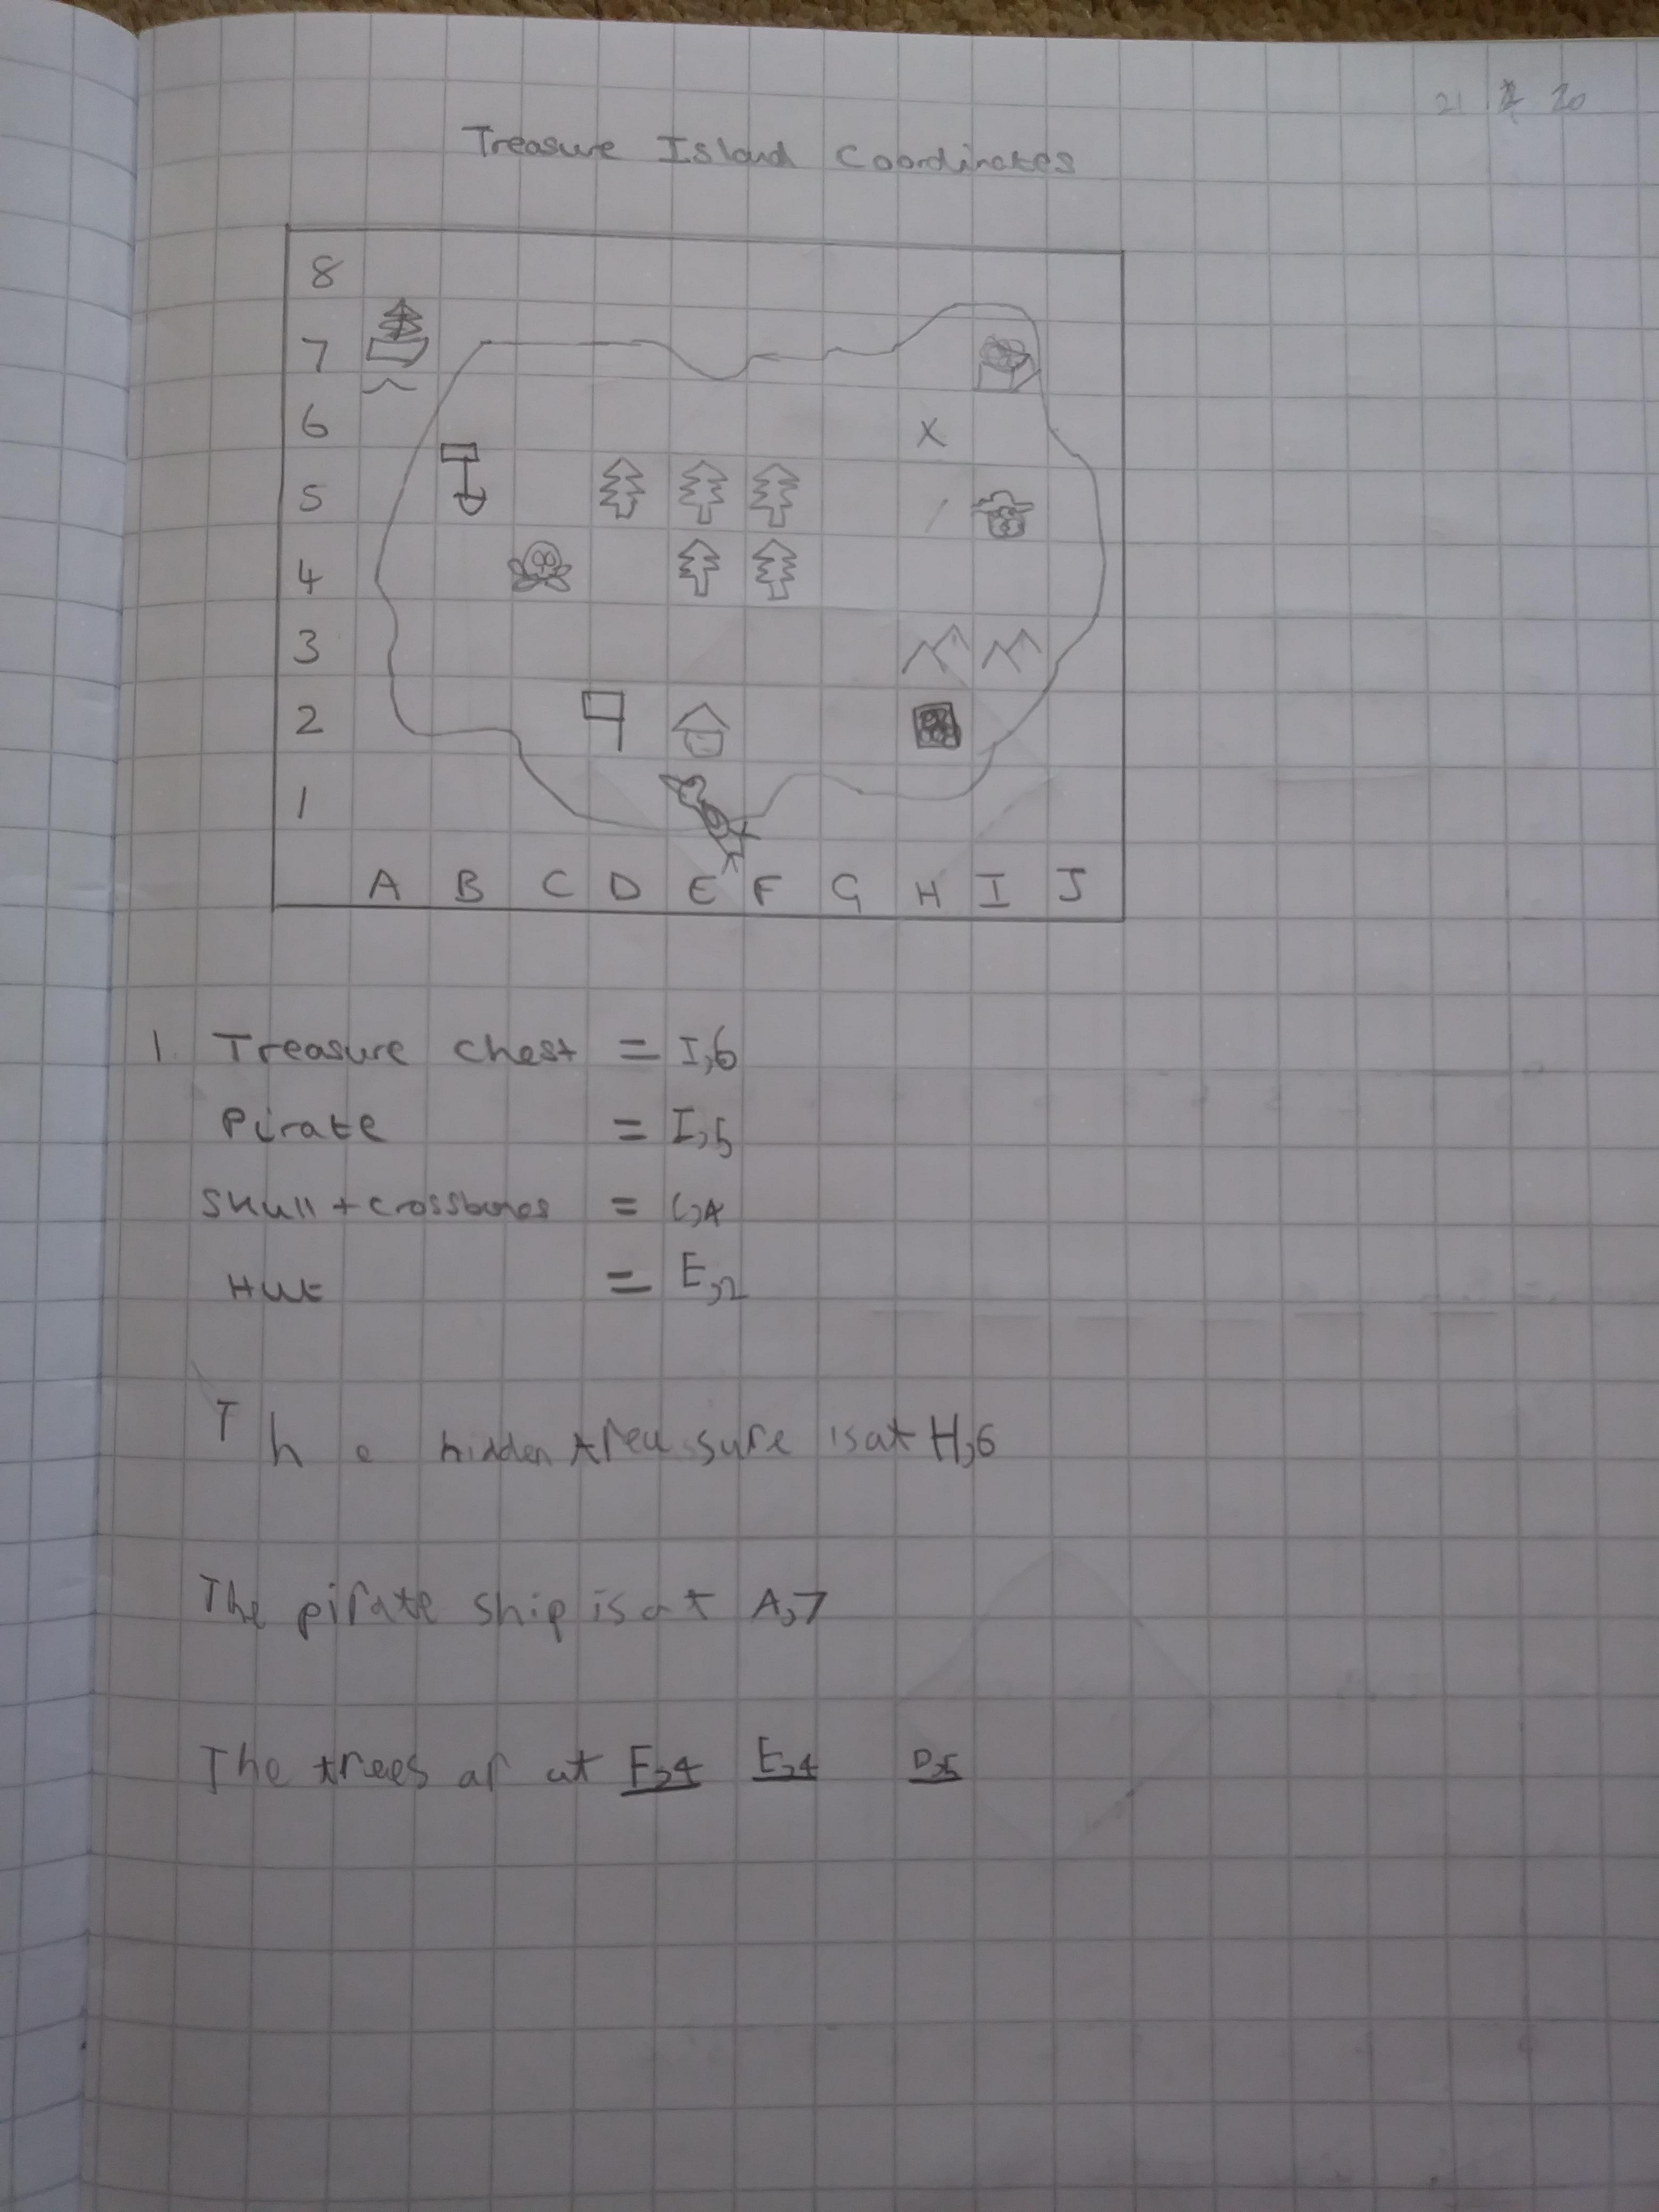 21 2 20
Treasure Island Coordinates
8
7
6
X
5
4
3
2
1
A B C D E F G H I J
1. Treasure chest = I,6
Pirate = I,5
Skull + crossbones = C,4
Hut = E,2
The hidden treasure is at H,6
The pirate ship is at A,7
The trees ar at F,4 E,4 D,5